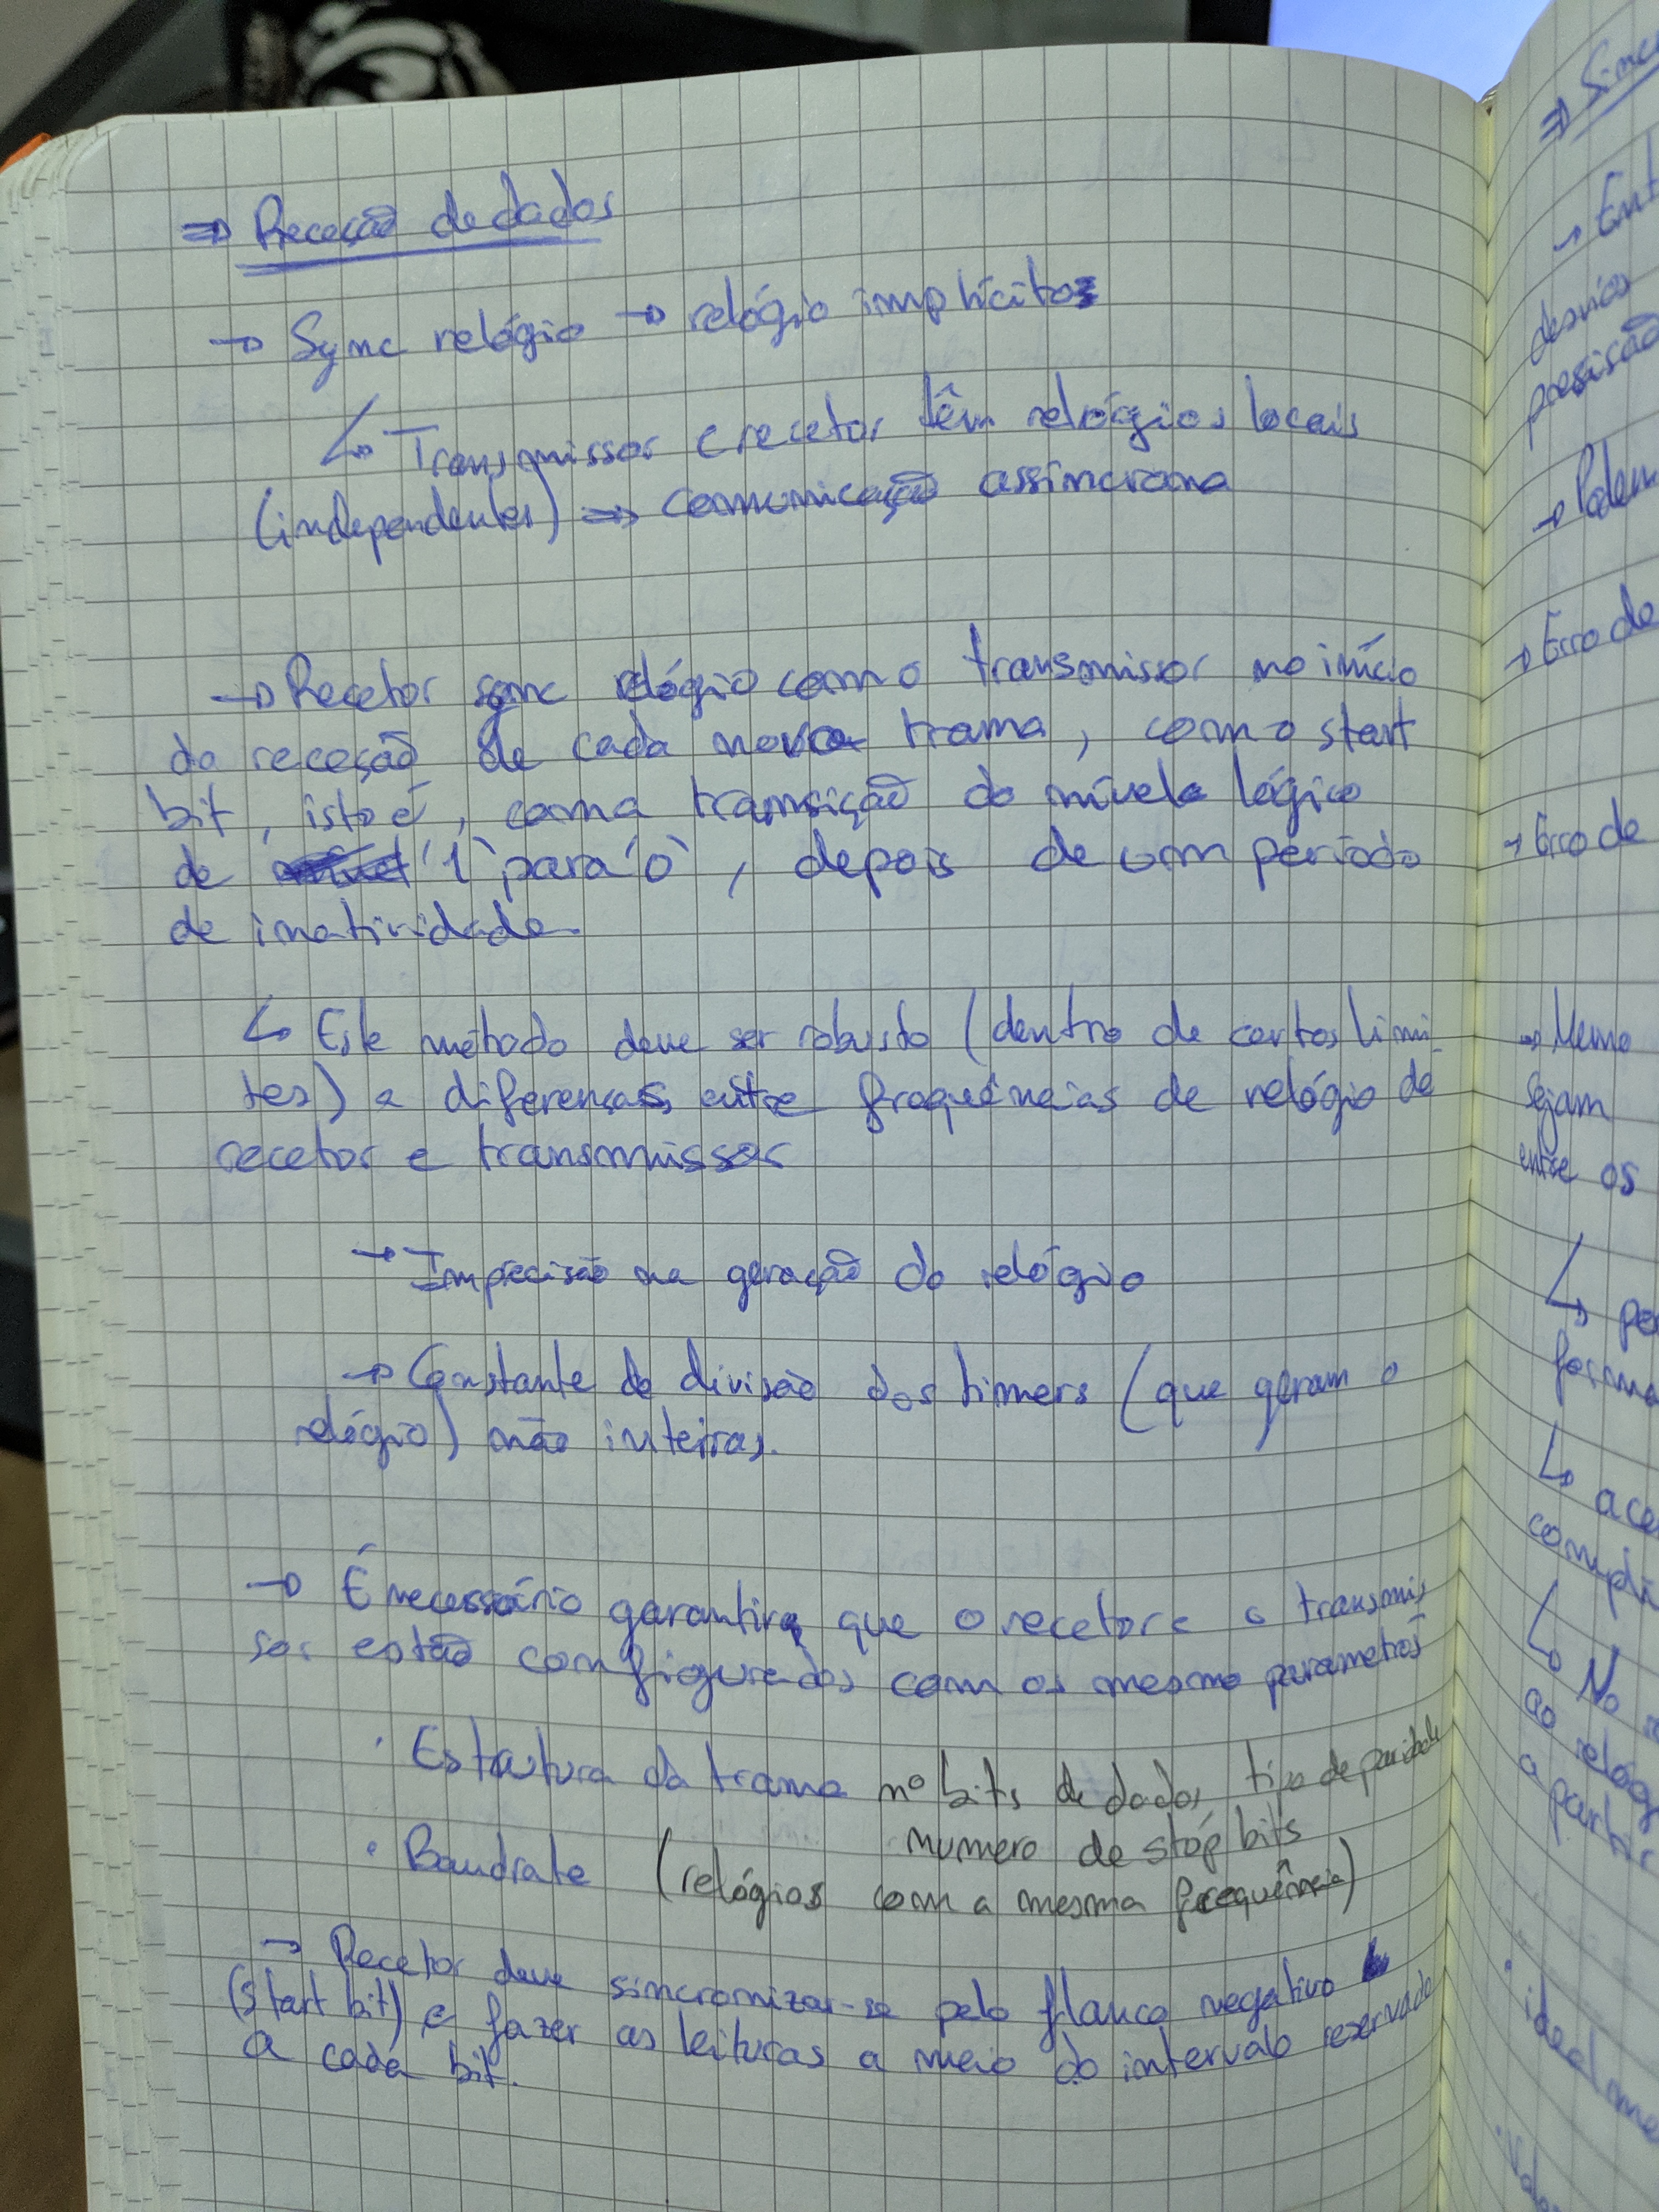 ⇒ Receção de dados
→ Sync relógio → relógio implícito
↳ Transmissor e recetor têm relógios locais
(independentes) ⇒ comunicação assíncrona
→ Recetor sync relógio com o transmissor no início
da receção de cada nova trama, com o start
bit, isto é, com a transição do nível lógico
de '1' para '0', depois de um período
de inatividade.
↳ Este método deve ser robusto (dentro de certos limi-
tes) a diferenças entre frequências de relógio de
recetor e transmissor
→ Imprecisão na geração do relógio
→ Constante de divisão dos timers (que geram o
relógio) não inteiras.
→ É necessário garantir que o recetor e o transmis
sor estão configurados com os mesmo parametros
· Estrutura da trama nº bits de dados, tipo de paridade
numero de stop bits
· Baudrate (relógios com a mesma frequência)
→ Recetor deve sincronizar-se pelo flanco negativo
(start bit) e fazer as leituras a meio do intervalo reservado
a cada bit.
⇒ Sinc
→ Ent
desvios
→ Podem
→ Erro de
→ Erro de
→ Mesmo
sejam
entre os
↳ po
forma
↳ ace
compli
↳ No
ao relóg
a partir
· idealme